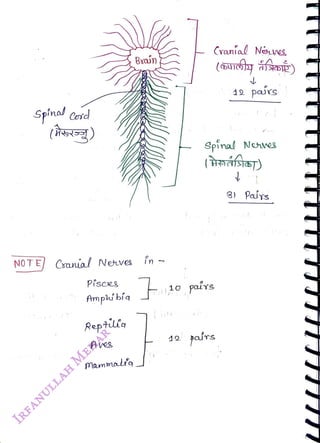 Cranial Nerves
Brain
(कपालीय तंत्रिकाएं)
12 pairs
Spinal Cord
(मेरुरज्जु)
Spinal Nerves
(मेरुतंत्रिका)
31 Pairs
NOTE Cranial Nerves in -
Pisces
10 pairs
Amphibia
Reptilia
12 pairs
Aves
Mammalia
IRFANULLAH